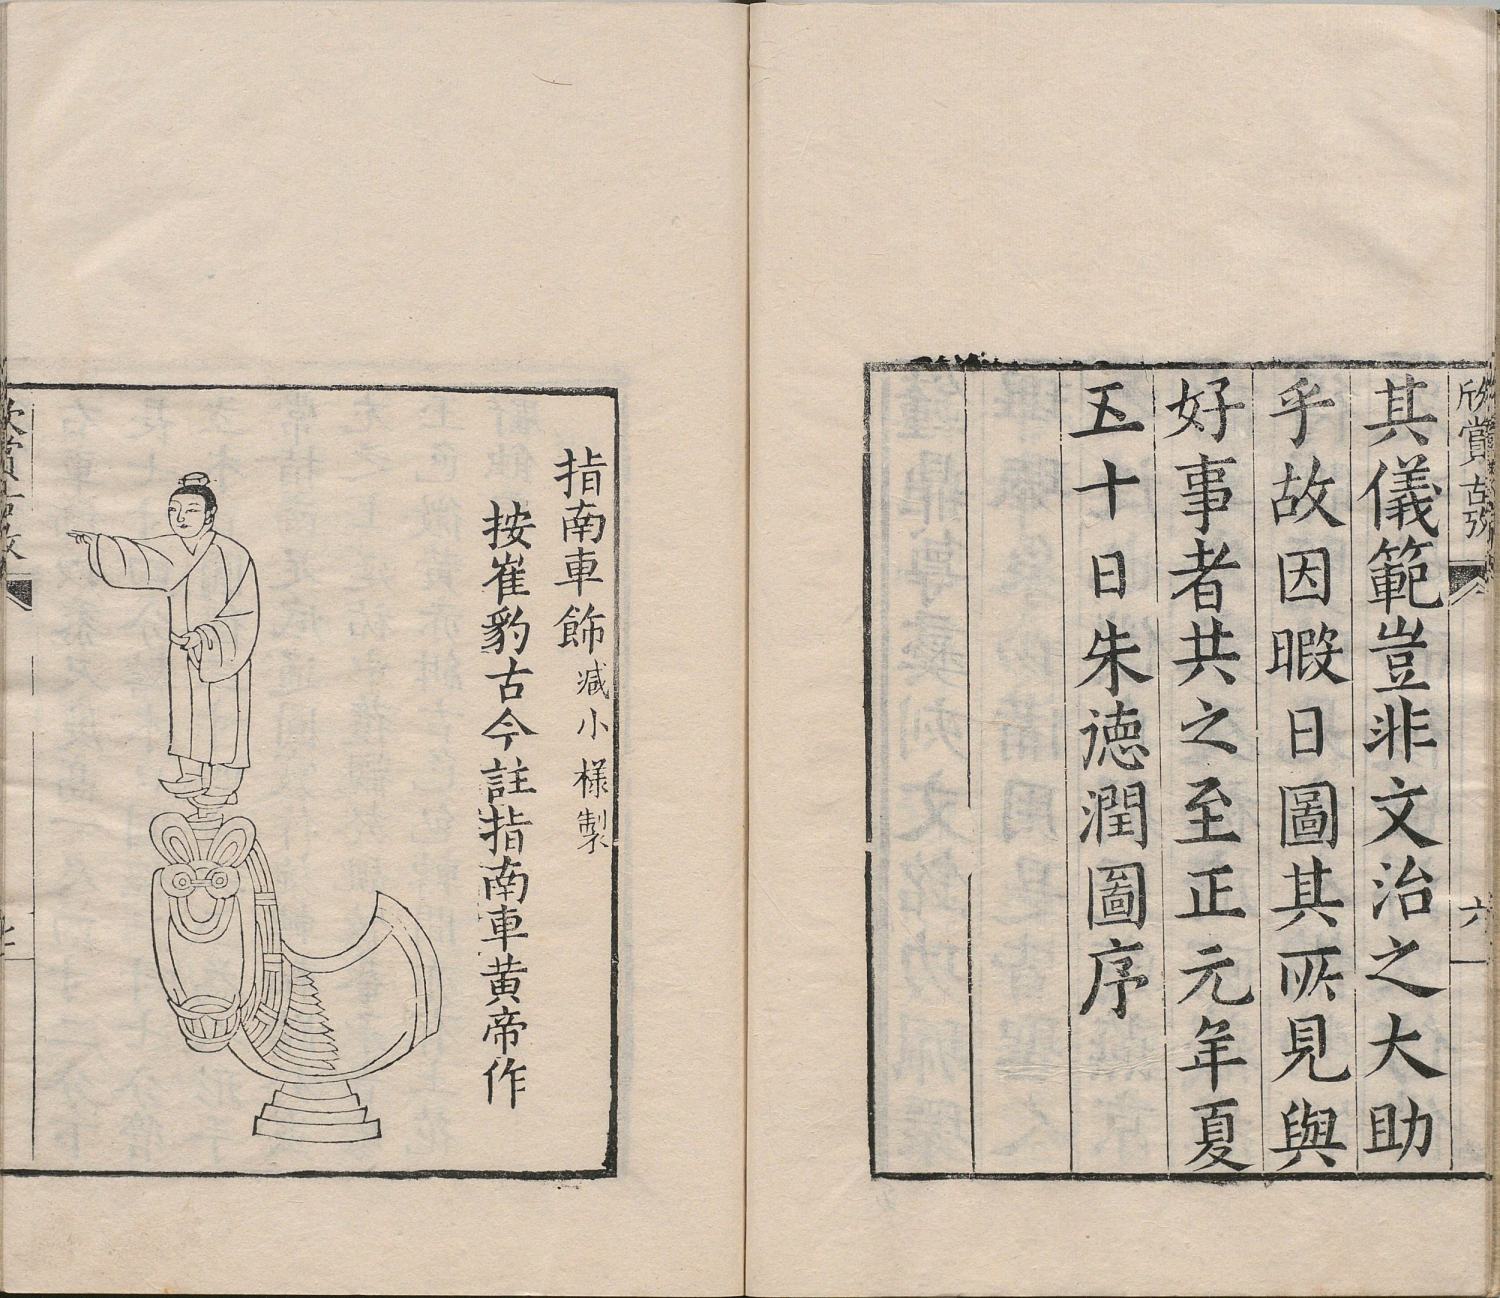 欣賞古攷
六
其儀範豈非文治之大助
乎故因暇日圖其所見與
好事者共之至正元年夏
五十日朱德潤圖序
指南車飾減小樣製
按崔豹古今註指南車黃帝作